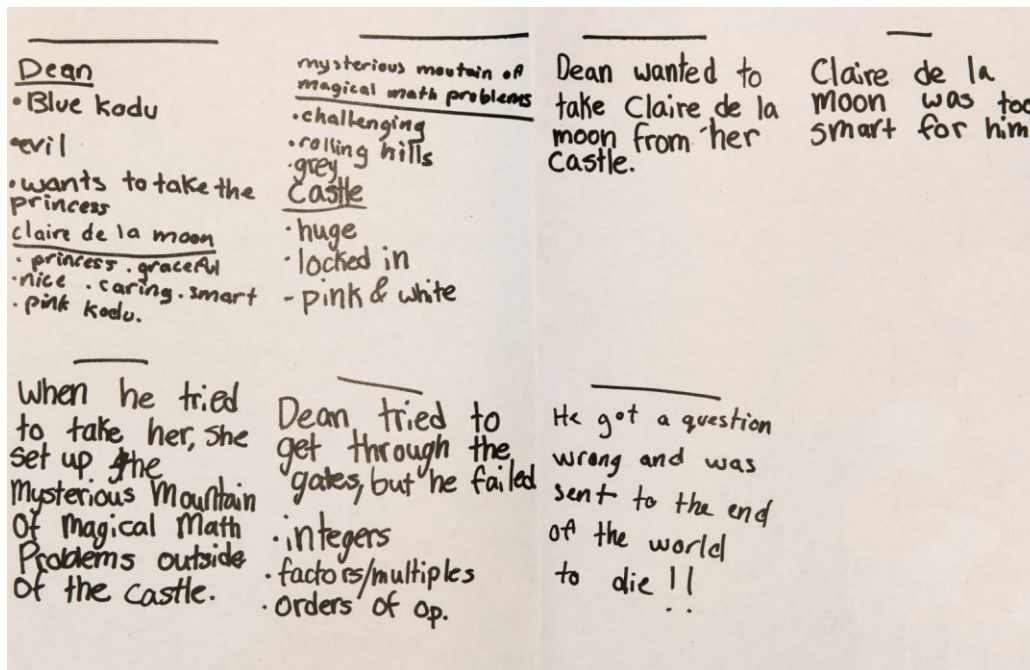 Dean
• Blue kodu
•evil
• wants to take the
princess
claire de la moon
• princess . graceful
• nice . caring . smart
• pink kodu.
mysterious moutain of
magical math problems
• challenging
• rolling hills
• grey
Castle
• huge
• locked in
- pink & white
Dean wanted to
take Claire de la
moon from her
castle.
Claire de la
moon was too
smart for him
When he tried
to take her, she
set up the
Mysterious Mountain
Of magical Math
Problems outside
Of the castle.
Dean tried to
get through the
gates, but he failed
• integers
• factors/multiples
• orders of op.
He got a question
wrong and was
sent to the end
of the world
to die !!